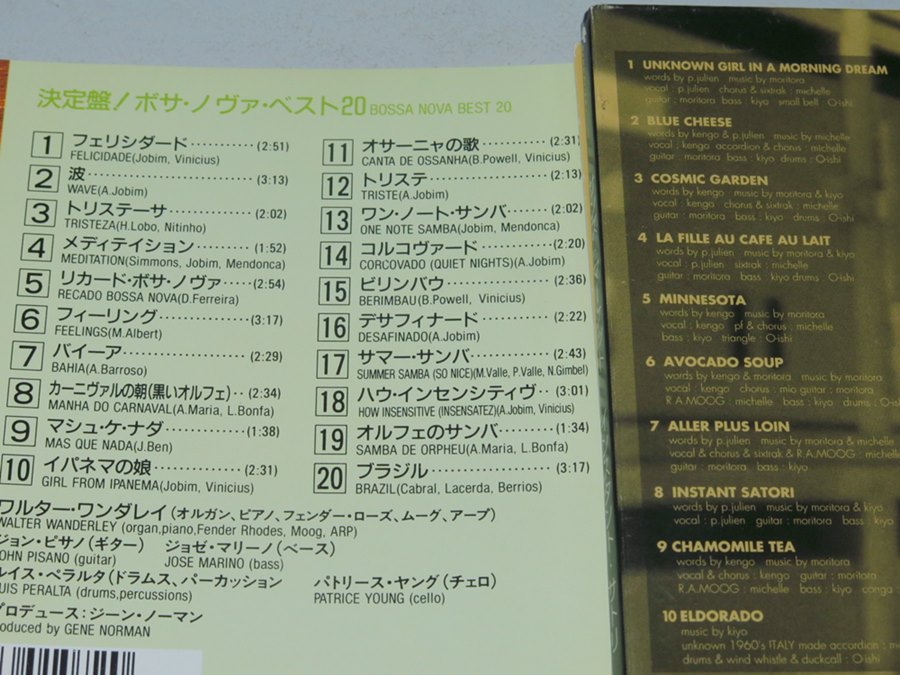 決定盤!ボサ・ノヴァ・ベスト20 BOSSA NOVA BEST 20
1 フェリシダード (2:51)
FELICIDADE(Jobim, Vinicius)
2 波 (3:13)
WAVE(A.Jobim)
3 トリステーサ (2:02)
TRISTEZA(H.Lobo, Nitinho)
4 メディテイション (1:52)
MEDITATION(Simmons, Jobim, Mendonca)
5 リカード・ボサ・ノヴァ (2:54)
RECADO BOSSA NOVA(D.Ferreira)
6 フィーリング (3:17)
FEELINGS(M.Albert)
7 バイーア (2:29)
BAHIA(A.Barroso)
8 カーニヴァルの朝(黒いオルフェ) (2:34)
MANHA DO CARNAVAL(A.Maria, L.Bonfa)
9 マシュ・ケ・ナダ (1:38)
MAS QUE NADA(J.Ben)
10 イパネマの娘 (2:31)
GIRL FROM IPANEMA(Jobim, Vinicius)
11 オサーニャの歌 (2:31)
CANTA DE OSSANHA(B.Powell, Vinicius)
12 トリステ (2:13)
TRISTE(A.Jobim)
13 ワン・ノート・サンバ (2:02)
ONE NOTE SAMBA(Jobim, Mendonca)
14 コルコヴァード (2:20)
CORCOVADO (QUIET NIGHTS)(A.Jobim)
15 ビリンバウ (2:36)
BERIMBAU(B.Powell, Vinicius)
16 デサフィナード (2:22)
DESAFINADO(A.Jobim)
17 サマー・サンバ (2:43)
SUMMER SAMBA (SO NICE)(M.Valle, P.Valle, N.Gimbel)
18 ハウ・インセンシティヴ (3:01)
HOW INSENSITIVE (INSENSATEZ)(A.Jobim, Vinicius)
19 オルフェのサンバ (1:34)
SAMBA DE ORPHEU(A.Maria, L.Bonfa)
20 ブラジル (3:17)
BRAZIL(Cabral, Lacerda, Berrios)
ワルター・ワンダレイ(オルガン、ピアノ、フェンダー・ローズ、ムーグ、アープ)
WALTER WANDERLEY (organ,piano,Fender Rhodes, Moog, ARP)
ジョン・ピサノ(ギター) ジョゼ・マリーノ(ベース)
JOHN PISANO (guitar) JOSE MARINO (bass)
ルイス・ペラルタ(ドラムス、パーカッション パトリース・ヤング(チェロ)
UIS PERALTA (drums,percussions) PATRICE YOUNG (cello)
プロデュース:ジーン・ノーマン
oduced by GENE NORMAN
1 UNKNOWN GIRL IN A MORNING DREAM
words by p.julien music by moritora
vocal : p.julien chorus & sixtrak : michelle
guitar : moritora bass : kiyo small bell : O-ishi
2 BLUE CHEESE
words by kengo & p.julien music by michelle
vocal : kengo accordion & chorus : michelle
guitar : moritora bass : kiyo drums : O-ishi
3 COSMIC GARDEN
words by kengo music by moritora & kiyo
vocal : kengo chorus & sixtrak : michelle
guitar : moritora bass : kiyo drums : O-ishi
4 LA FILLE AU CAFE AU LAIT
words by p.julien music by moritora & kiyo
vocal : p.julien sixtrak : michelle
guitar : moritora bass : kiyo drums : O-ishi
5 MINNESOTA
words by kengo music by moritora
vocal : kengo pf & chorus : michelle
bass : kiyo triangle : O-ishi
6 AVOCADO SOUP
words by kengo & moritora music by moritora
vocal : kengo chorus : mio guitar : moritora
R.A.MOOG : michelle bass : kiyo drums : O-is
7 ALLER PLUS LOIN
words by p.julien music by moritora & michelle
vocal & chorus & sixtrak & R.A.MOOG : michell
guitar : moritora bass : kiyo
8 INSTANT SATORI
words by p.julien music by moritora & kiyo
vocal : p.julien guitar : moritora bass : kiyo
9 CHAMOMILE TEA
words by kengo music by moritora
vocal & chorus : kengo guitar : moritora
R.A.MOOG : michelle bass : kiyo conga :
10 ELDORADO
music by kiyo
unknown 1960's ITALY made accordion : m
drums & wind whistle & duckcall : O-ishi